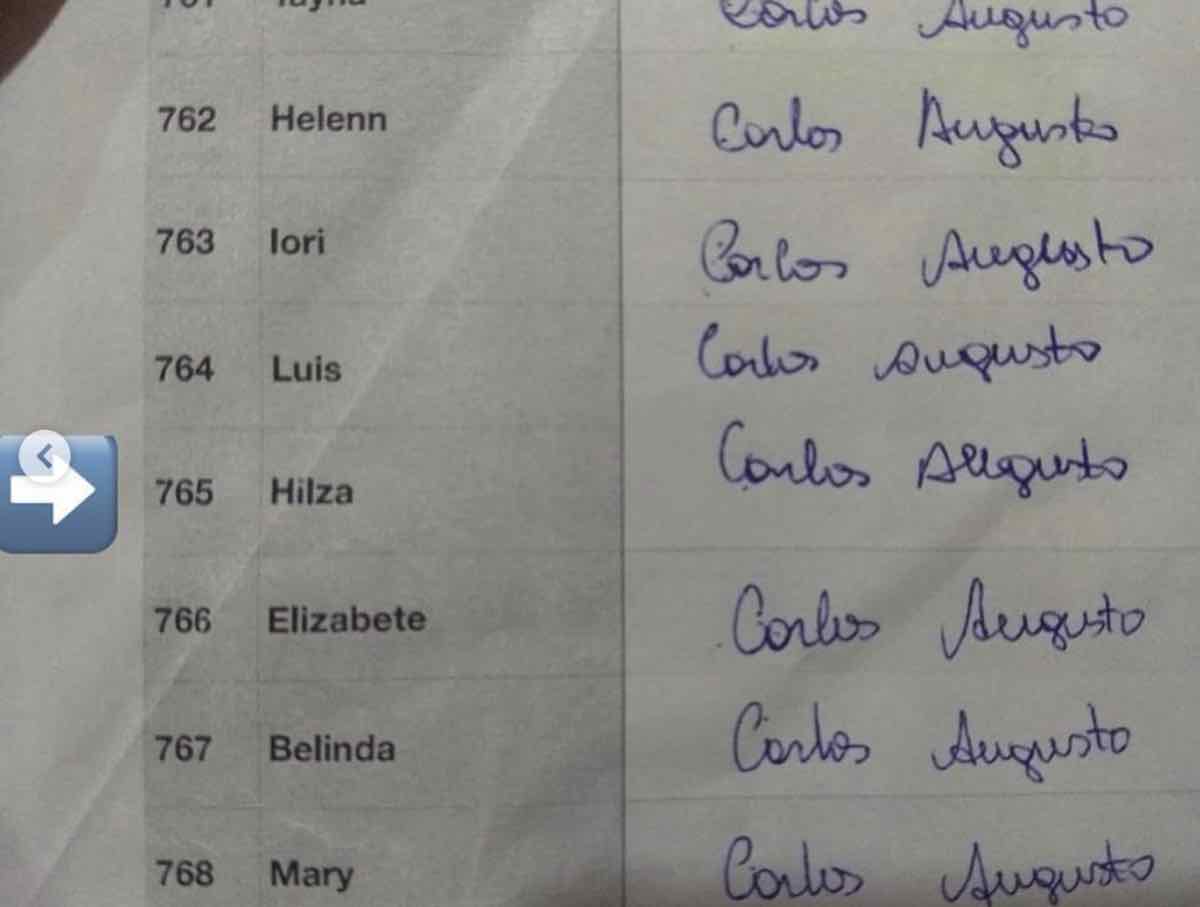 761 Tayna Carlos Augusto
762 Helenn Carlos Augusto
763 Iori Carlos Augusto
764 Luis Carlos Augusto
765 Hilza Carlos Augusto
766 Elizabete Carlos Augusto
767 Belinda Carlos Augusto
768 Mary Carlos Augusto